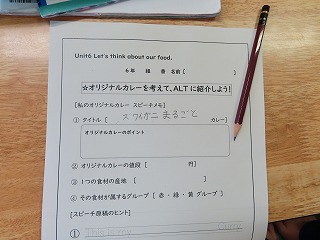 Unit6 Let's think about our food.
6年 組 番 名前[ ]
☆オリジナルカレーを考えて、ALTに紹介しよう!
[私のオリジナルカレー スピーチメモ]
① タイトル [ ズワイガニ まるごと カレー]
オリジナルカレーのポイント
② オリジナルカレーの値段 [ 円]
③ 1つの食材の産地 [ ]
④ その食材が属するグループ [ 赤 ・ 緑 ・ 黄 グループ ]
[スピーチ原稿のヒント]
① This is my